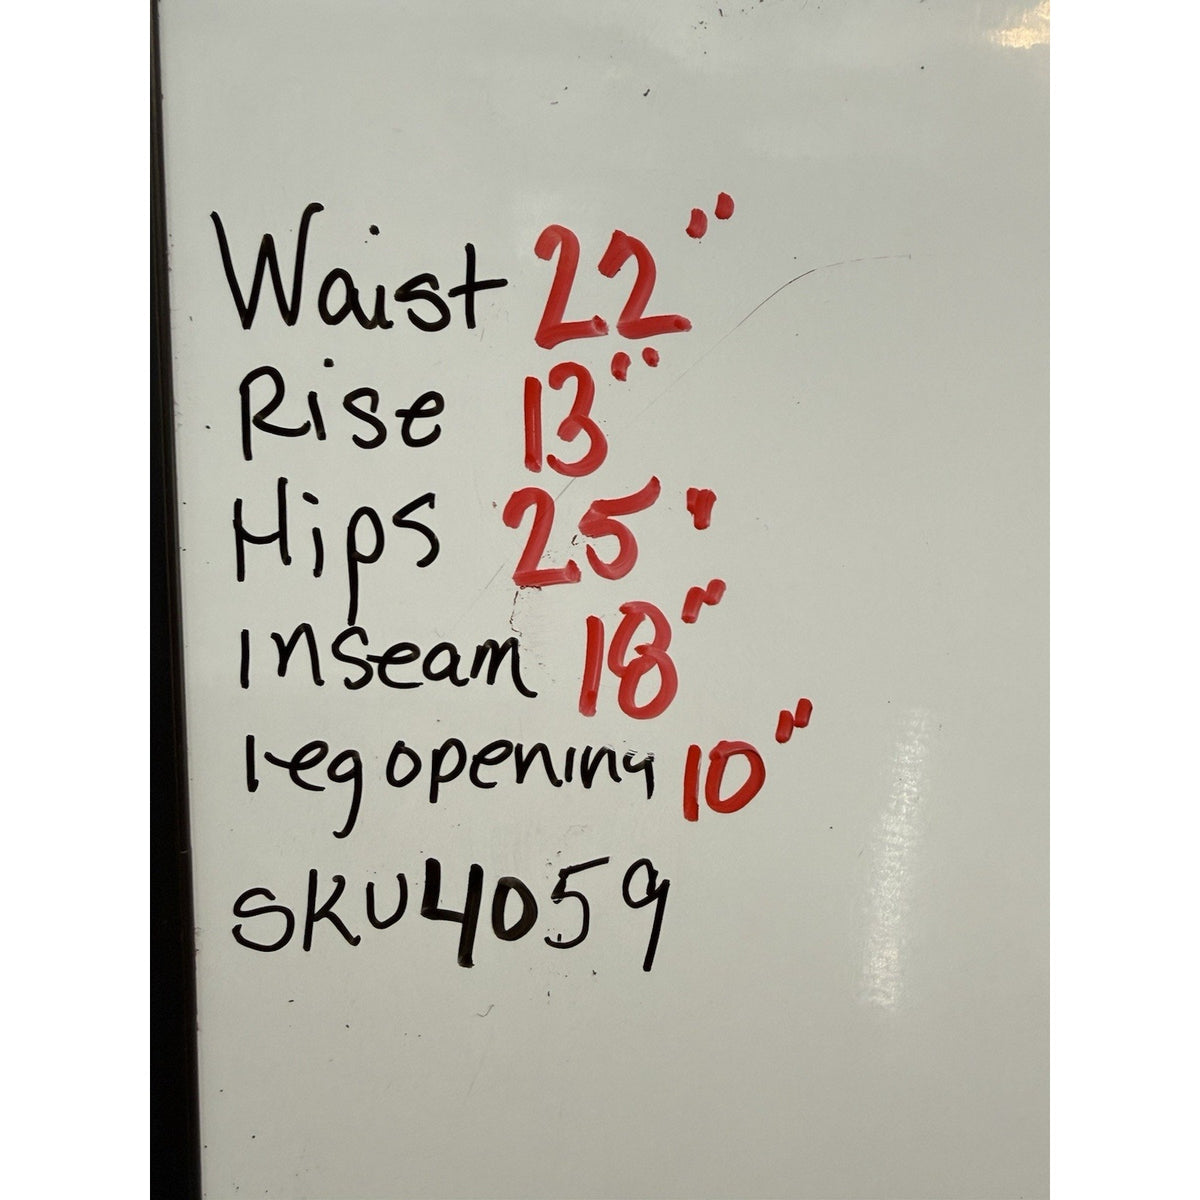 Waist 22"
Rise 13"
Hips 25"
Inseam 18"
leg opening 10"
SKU4059